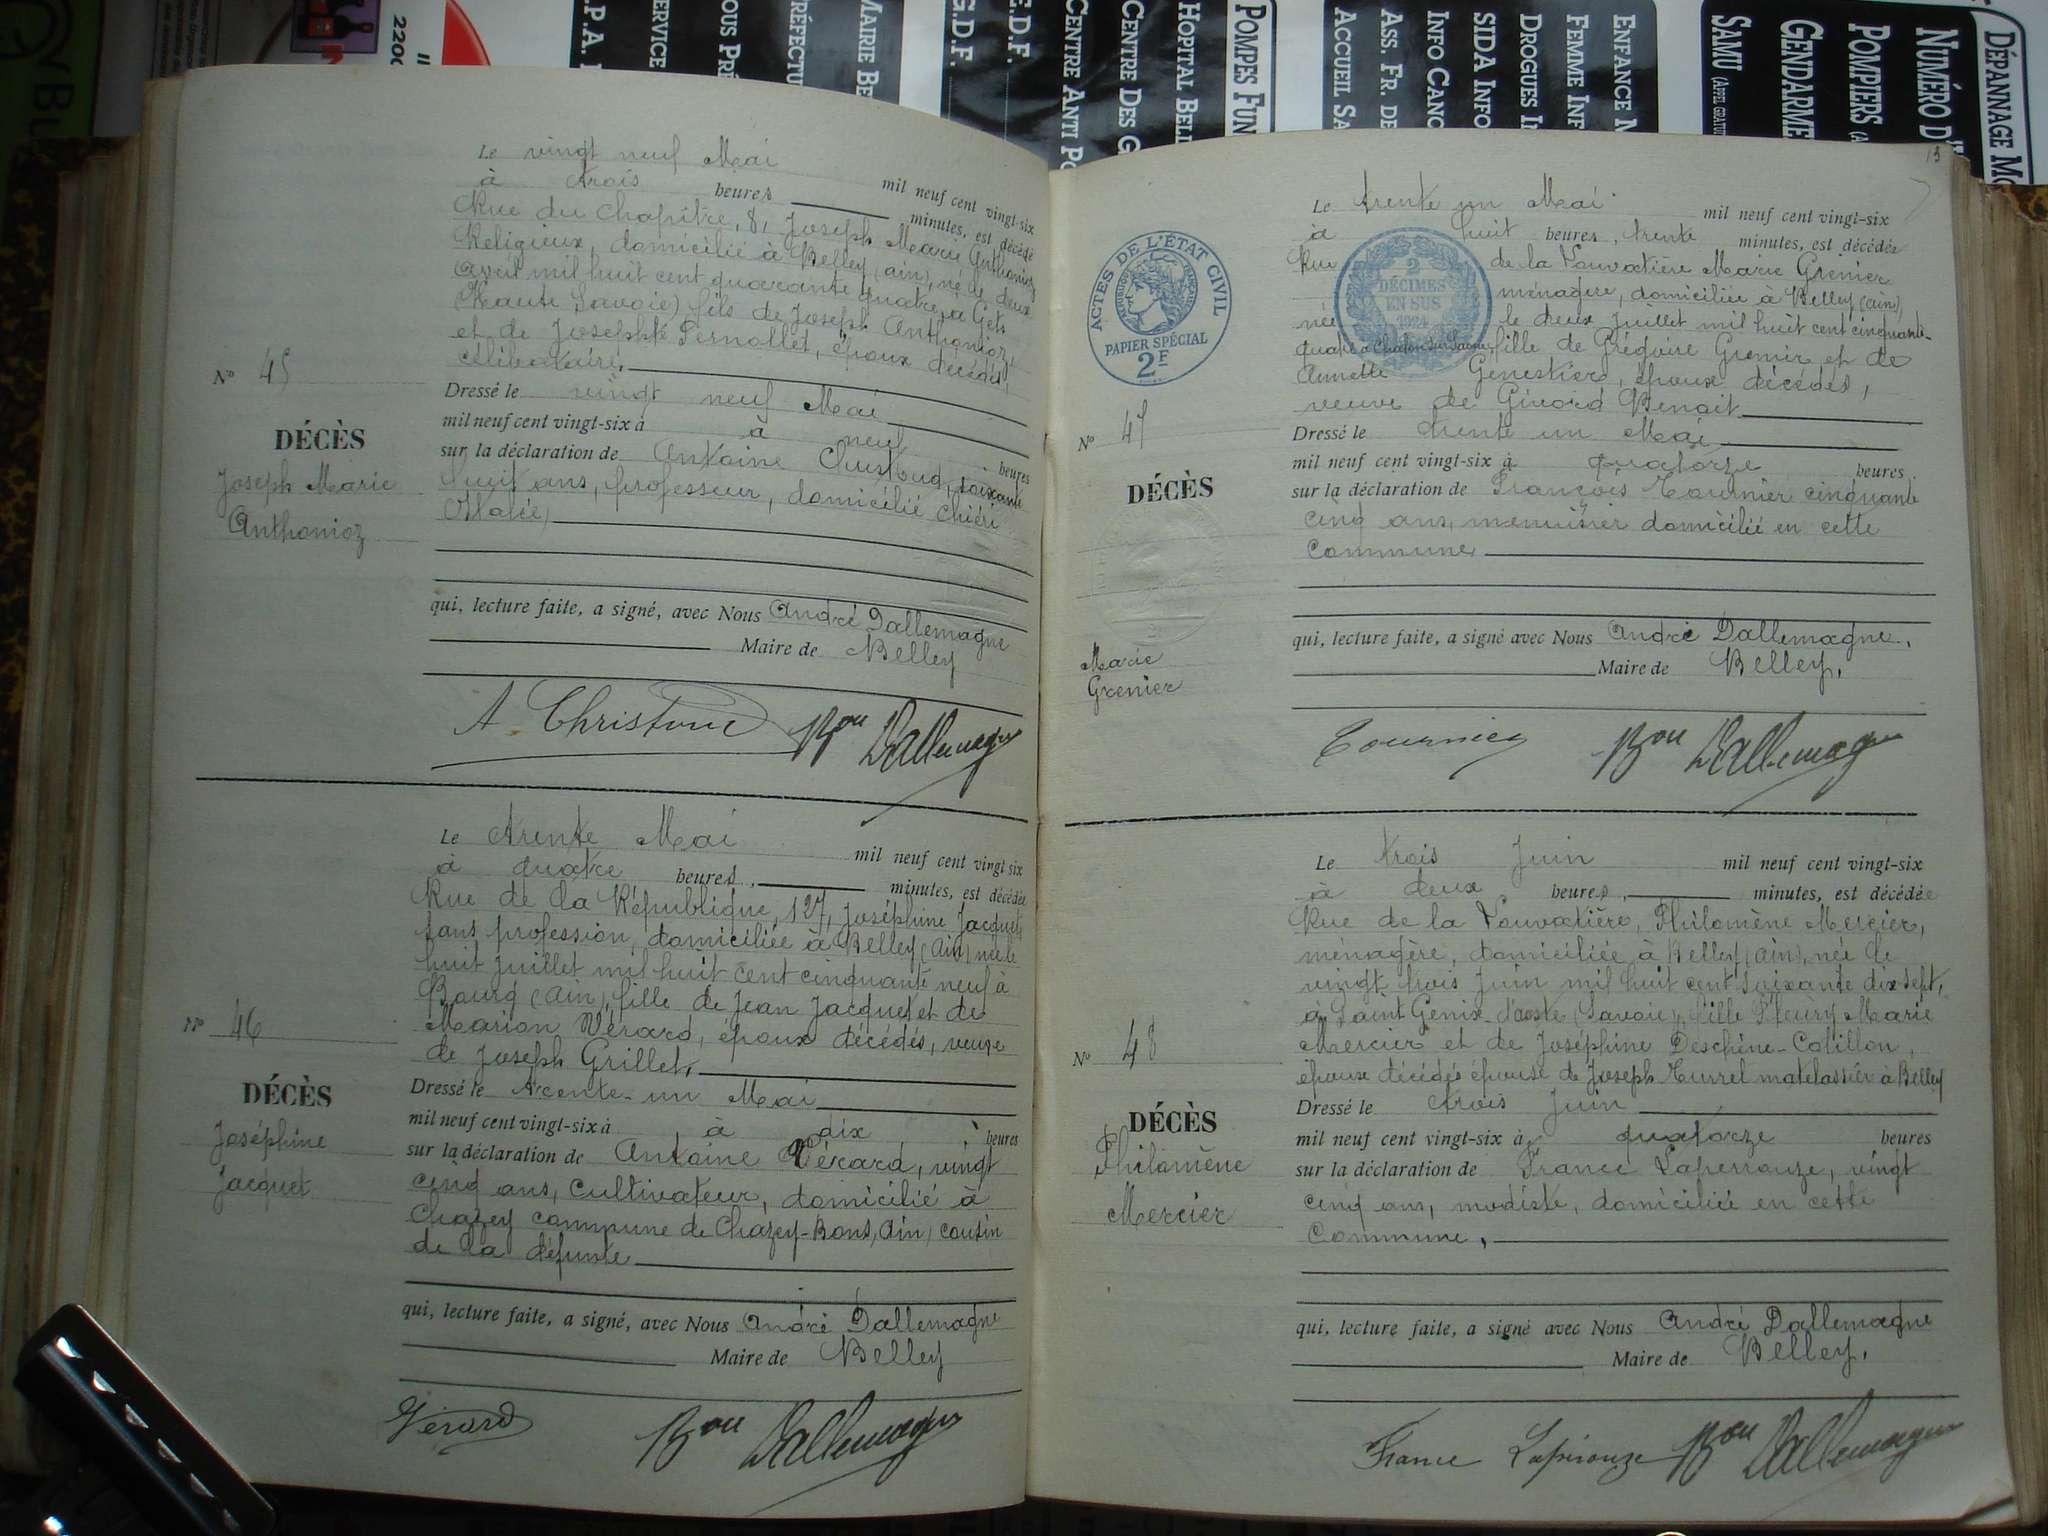 DÉPANNAGE MO
NUMÉRO D'
POMPIERS (A
GENDARME
SAMU (APPEL GRATUIT
ENFANCE M
FEMME INF
DROGUES I
SIDA INFO
INFO CANC
ASS. FR. DE
ACCUEIL SA
POMPES FUN
HOPITAL BELL
CENTRE DES G
CENTRE ANTI PO
E.D.F.
G.D.F.
MAIRIE BE
RÉFECTU
OUS PRÉ
ERVICE
.P.A.
2200
Le vingt neuf Mai
mil neuf cent vingt-six
à trois heures minutes, est décédé
Rue du Chapitre, 8, Joseph Marie Anthonioz
Religieux, domicilié à Belley (ain), né le deux
avril mil huit cent quarante quatre à Gets
(Haute Savoie) fils de Joseph Anthonioz,
et de Josephte Pernollet, époux décédés,
célibataire,
Nº 45
DÉCÈS
Joseph Marie
Anthonioz
Dressé le vingt neuf Mai
mil neuf cent vingt-six à à neuf heures
sur la déclaration de Antoine soixante
huit ans, professeur, domicilié Chiéri
(Italie)
qui, lecture faite, a signé, avec Nous André Dallemagne
Maire de Belley
A. Christone Bon Dallemagne
Le trente Mai
mil neuf cent vingt-six
à quatre heures, minutes, est décédée
Rue de la République, 127, Joséphine Jacquet
sans profession, domiciliée à Belley (Ain) née le
huit Juillet mil huit cent cinquante neuf à
Bourg (Ain), fille de Jean Jacquet et de
Marion Vérard, époux décédés, veuve
de Joseph Grillet,
Nº 46
DÉCÈS
Joséphine
Jacquet
Dressé le trente-un Mai
mil neuf cent vingt-six à à dix heures
sur la déclaration de Antoine Vérard, vingt
cinq ans, cultivateur, domicilié à
Chazey commune de Chazey-Bons, (Ain) cousin
de la défunte
qui, lecture faite, a signé, avec Nous André Dallemagne
Maire de Belley
Vérard Bon Dallemagne
13
Le trente un Mai
mil neuf cent vingt-six
à huit heures, trente minutes, est décédée
Rue de la Vouvatière Marie Grenier
ménagère, domiciliée à Belley (ain),
née le deux Juillet mil huit cent cinquante-
quatre à Chalon sur Saône, fille de Grégoire Grenier et de
Annette Genestier, époux décédés,
veuve de Girord Benoit
ACTES DE L'ÉTAT CIVIL
RÉPUBLIQUE FRANÇAISE
PAPIER SPÉCIAL
2F
2
DÉCIMES
EN SUS
1924
Nº 47
DÉCÈS
Marie
Grenier
Dressé le trente un Mai
mil neuf cent vingt-six à quatorze heures
sur la déclaration de François Tournier cinquante
cinq ans, menuisier domicilié en cette
commune
qui, lecture faite, a signé avec Nous André Dallemagne,
Maire de Belley,
Tournier Bon Dallemagne
Le trois Juin mil neuf cent vingt-six
à deux heures, minutes, est décédée
Rue de la Vouvatière, Philomène Mercier,
ménagère, domiciliée à Belley (Ain), née le
vingt trois Juin mil huit cent soixante dix sept,
à Saint Genix-d'aoste (Savoie), fille Fleury Marie
Mercier et de Joséphine Deschène-Cotillon,
époux décédés épouse de Joseph Turrel matelassier à Belley
Nº 48
DÉCÈS
Philomène
Mercier
Dressé le trois Juin
mil neuf cent vingt-six à quatorze heures
sur la déclaration de France Laperrouze, vingt
cinq ans, modiste, domiciliée en cette
Commune,
qui, lecture faite, a signé avec Nous André Dallemagne
Maire de Belley,
France Lapérouze Bon Dallemagne